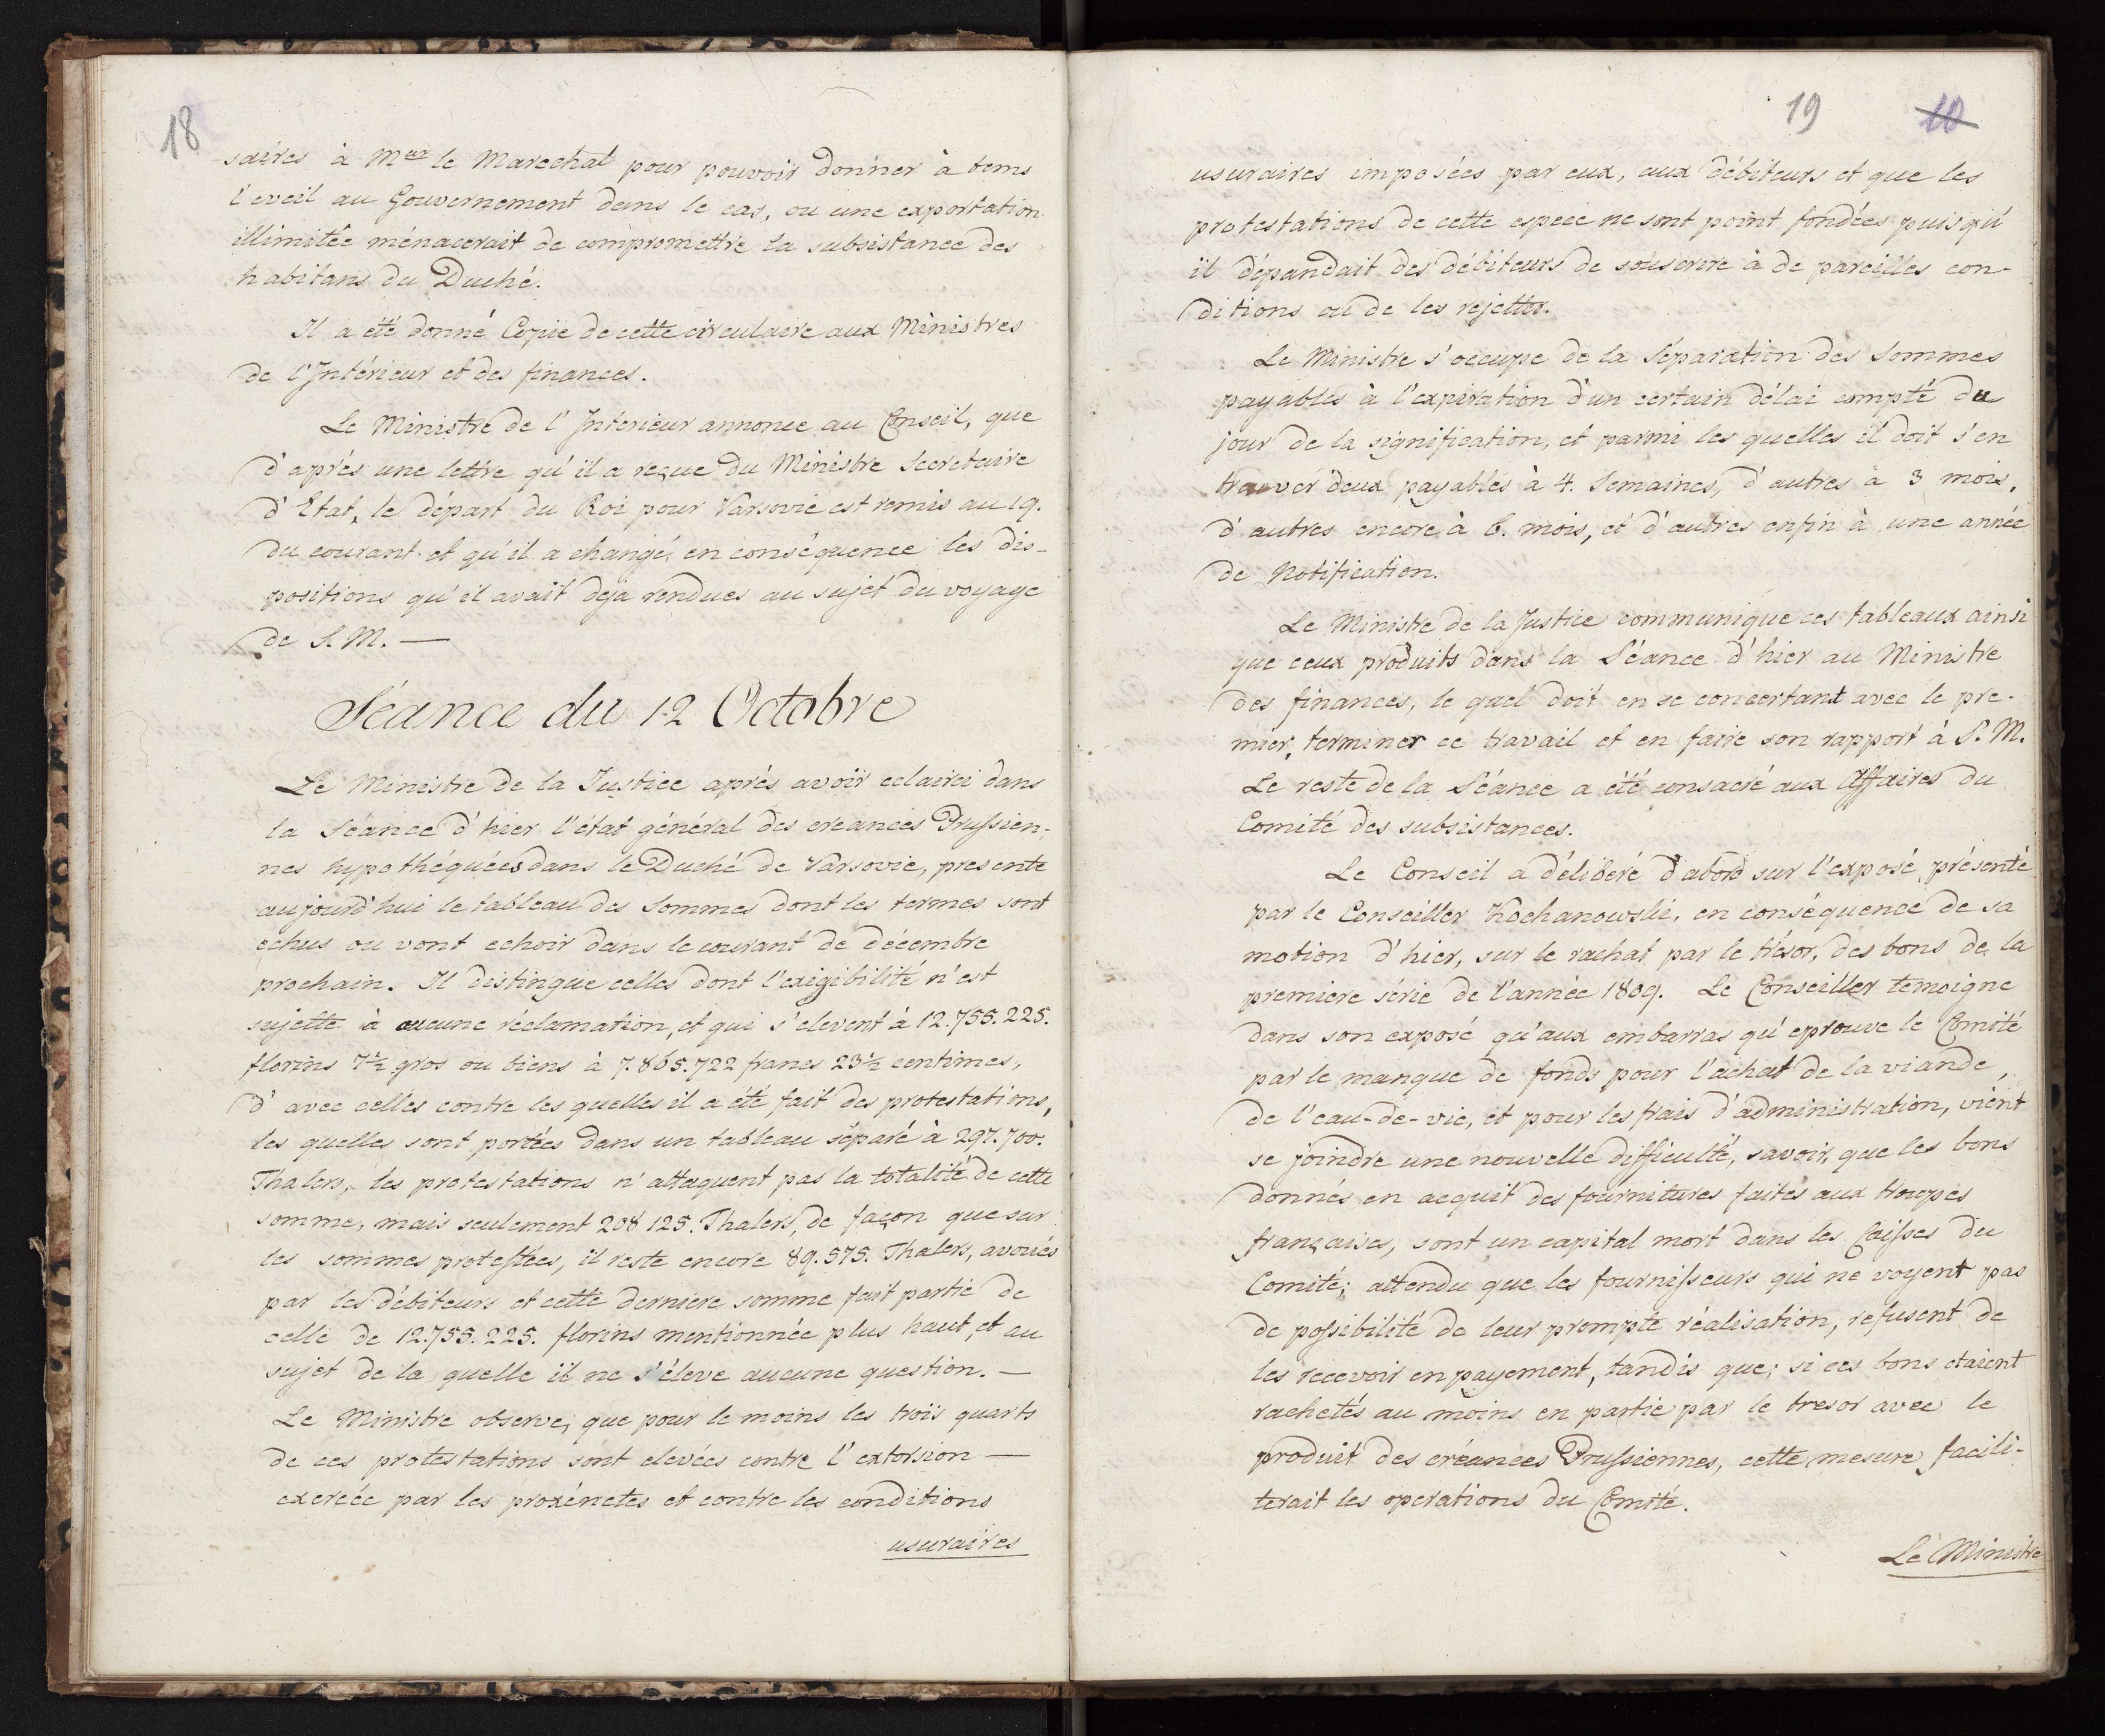 18
saires à Mʳ le Marechal pour pouvoir donner à tems
l'eveil au Gouvernement dans le cas, ou une exportation
illimitée ménacerait de compromettre la subsistance des
habitans du Duché.
Il a été donné Copie de cette circulaire aux Ministres
de l'Intérieur et des finances.
Le Ministre de l'Interieur annonce au Conseil, que
d'aprés une lettre qu'il a reçue du Ministre Secretaire
d'Etat, le départ du Roi pour Varsovie est remis au 19.
du courant et qu'il a changé en conséquence les dis-
positions qu'il avait deja rendues au sujet du voyage
de S. M. —
Séance du 12 Octobre
Le Ministre de la Justice aprés avoir eclairci dans
la Séance d'hier l'état général des creances Prussien-
nes hypothéquées dans le Duché de Varsovie, presente
aujourd'hui le tableau des Sommes dont les termes sont
echus ou vont echoir dans le courant de décembre
prochain. Il distingue celles dont l'exigibilité n'est
sujette à aucune réclamation, et qui s'elevent à 12.755.225.
florins 7½ gros ou biens à 7.865.722 francs 23½ centimes,
d'avec celles contre les quelles il a été fait des protestations,
les quelles sont portées dans un tableau séparé à 297.700.
Thalers, les protestations n'attaquent pas la totalité de cette
somme, mais seulement 208 125. Thalers, de façon que sur
les sommes protestées, il reste encore 89.575. Thalers, avoués
par les débiteurs et cette derniere somme fait partie de
celle de 12.755.225. florins mentionnée plus haut, et au
sujet de la quelle il ne s'éleve aucune question. —
Le Ministre observe, que pour le moins les trois quarts
de ces protestations sont elevées contre l'extorsion —
exercée par les proxénetes et contre les conditions
usuraires
19 10
usuraires imposées par eux, aux débiteurs et que les
protestations de cette espece ne sont point fondées puisqu'
il dépandait des débiteurs de souscrire à de pareilles con-
ditions ou de les rejetter.
Le Ministre s'occupe de la Séparation des Sommes
payables à l'expiration d'un certain délai compté du
jour de la signification, et parmi les quelles il doit s'en
trouver deux payables à 4. Semaines, d'autres à 3 mois,
d'autres encore à 6. mois, et d'autres enfin à une année
de Notification.
Le Ministre de la Justice communique ces tableaux ainsi
que ceux produits dans la Séance d'hier au Ministre
des finances, le quel doit en se concertant avec le pre-
mier, terminer ce travail et en faire son rapport à S. M.
Le reste de la Séance a été consacré aux Affaires du
Comité des subsistances.
Le Conseil a délibéré d'abord sur l'exposé, présenté
par le Conseiller Kochanowski, en conséquence de sa
motion d'hier, sur le rachat par le trésor, des bons de la
premiere série de l'année 1809. Le Conseiller temoigne
dans son exposé qu'aux embarras qu'eprouve le Comité
par le manque de fonds pour l'achat de la viande,
de l'eau-de-vie, et pour les frais d'administration, vient
se joindre une nouvelle difficulté, savoir, que les bons
donnés en acquit des fournitures faites aux troupes
françaises, sont un capital mort dans les Caisses du
Comité; attendu que les fournisseurs qui ne voyent pas
de possibilité de leur prompte réalisation, refusent de
les recevoir en payement, tandis que; si ces bons etaient
rachetés au moins en partie par le tresor avec le
produit des créances Prussiennes, cette mesure facili-
terait les operations du Comité.
Le Ministre